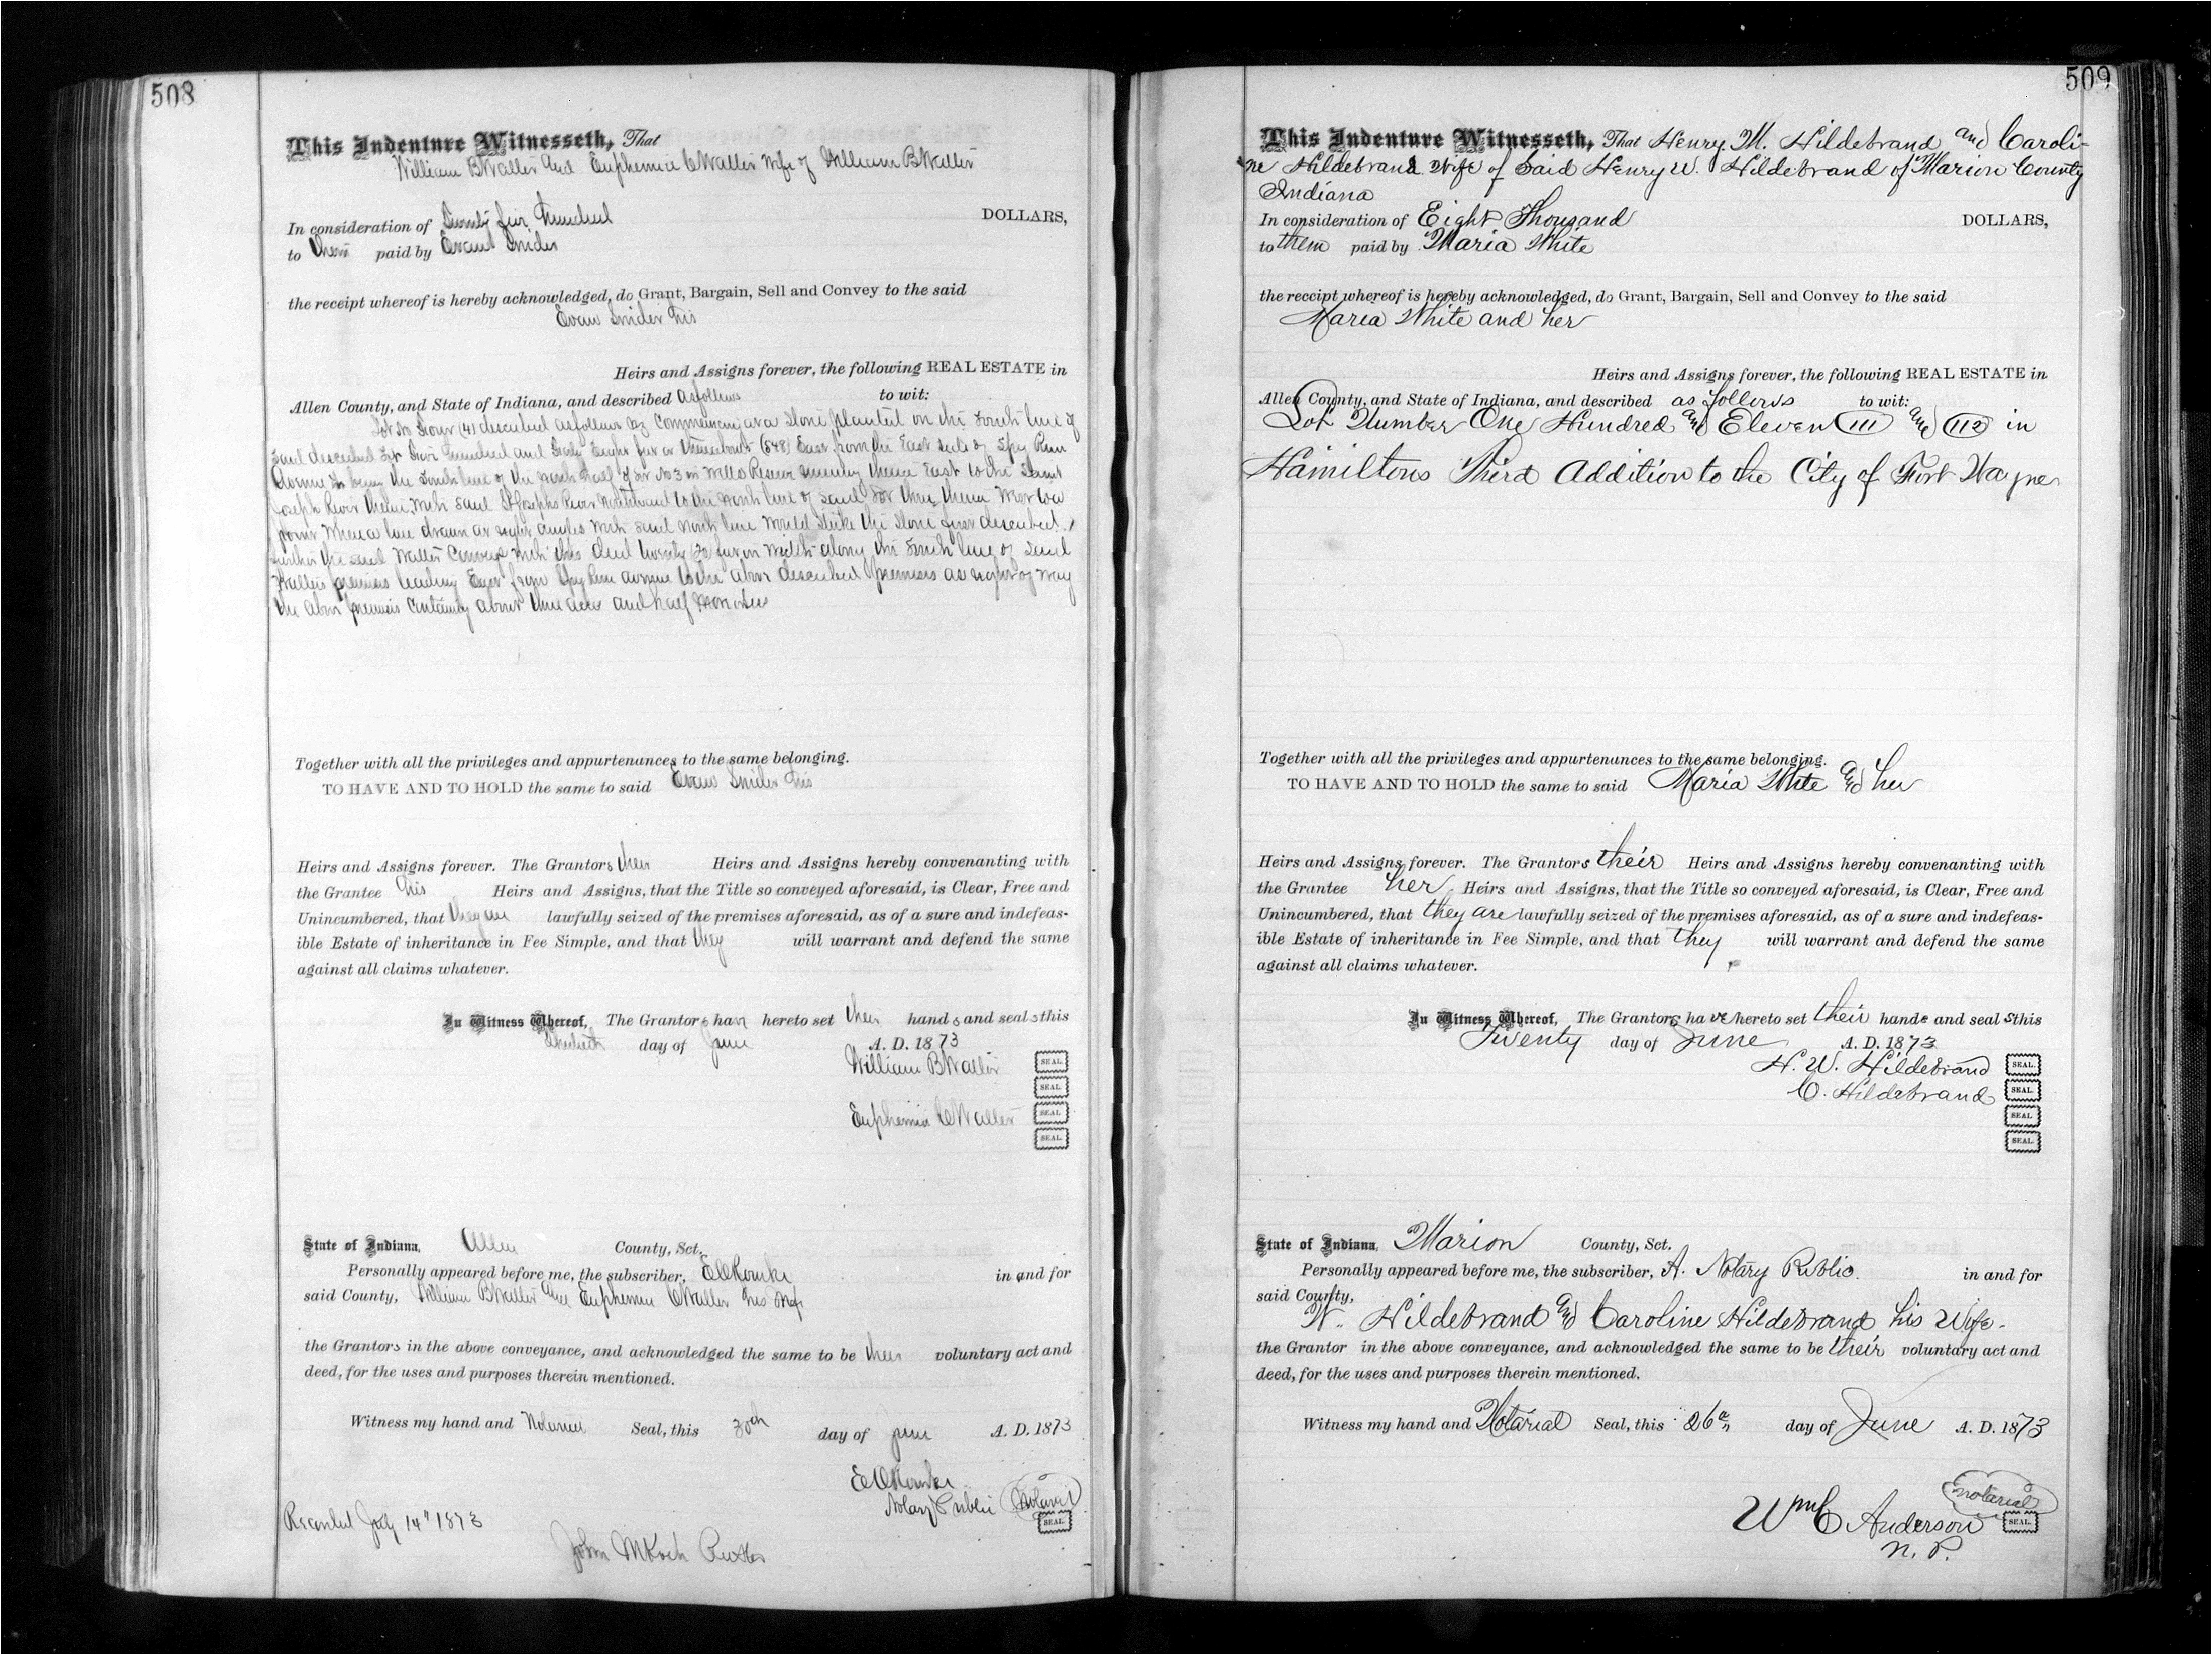 508
This Indenture Witnesseth, That
William B Waller and Euphemia C Waller Wife of William B Waller
In consideration of Twenty five Hundred DOLLARS,
to them paid by Evan Snider
the receipt whereof is hereby acknowledged, do Grant, Bargain, Sell and Convey to the said
Evan Snider his
Heirs and Assigns forever, the following REAL ESTATE in
Allen County, and State of Indiana, and described as follows to wit:
Lot No Four (4) described as follows Commencing at a Stone planted on the South line of
said described Lot Five Hundred and Forty Eight feet or thereabouts (548) East from the East side of Spy Run
Avenue being the South line of the North half of Lot No 3 in Wells Reserve running thence East to the Saint
Joseph River thence with said St Josephs River Northward to the North line of said Lot three thence West to a
point where a line drawn at right angles with said North line would strike the Stone first described
further the said Waller Conveys with this deed twenty (20) feet in width along the South line of said
Wallers premises leading East from Spy Run avenue to the above described premises as right of way
the above premises containing about three acres and half more or less
Together with all the privileges and appurtenances to the same belonging.
TO HAVE AND TO HOLD the same to said Evan Snider his
Heirs and Assigns forever. The Grantors their Heirs and Assigns hereby convenanting with
the Grantee his Heirs and Assigns, that the Title so conveyed aforesaid, is Clear, Free and
Unincumbered, that they are lawfully seized of the premises aforesaid, as of a sure and indefeas-
ible Estate of inheritance in Fee Simple, and that they will warrant and defend the same
against all claims whatever.
In Witness Whereof, The Grantors have hereto set their hands and seals this
day of June A. D. 1873
William B Waller SEAL.
SEAL.
Euphemia C Waller SEAL.
SEAL.
State of Indiana, Allen County, Sct.
Personally appeared before me, the subscriber, in and for
said County, William B Waller and Euphemia C Waller his Wife
the Grantors in the above conveyance, and acknowledged the same to be their voluntary act and
deed, for the uses and purposes therein mentioned.
Witness my hand and Notarial Seal, this 30th day of June A. D. 1873
Notary Public Notarial
SEAL.
Recorded July 14" 1873
John M Koch
509
This Indenture Witnesseth, That Henry M. Hildebrand and Caroli-
ne Hildebrand Wife of Said Henry W. Hildebrand of Marion County
Indiana
In consideration of Eight Thousand DOLLARS,
to them paid by Maria White
the receipt whereof is hereby acknowledged, do Grant, Bargain, Sell and Convey to the said
Maria White and her
Heirs and Assigns forever, the following REAL ESTATE in
Allen County, and State of Indiana, and described as follows to wit:
Lot Number One Hundred and Eleven (111) and (112) in
Hamiltons Third Addition to the City of Fort Wayne
Together with all the privileges and appurtenances to the same belonging.
TO HAVE AND TO HOLD the same to said Maria White and her
Heirs and Assigns forever. The Grantors their Heirs and Assigns hereby convenanting with
the Grantee her Heirs and Assigns, that the Title so conveyed aforesaid, is Clear, Free and
Unincumbered, that they are lawfully seized of the premises aforesaid, as of a sure and indefeas-
ible Estate of inheritance in Fee Simple, and that they will warrant and defend the same
against all claims whatever.
In Witness Whereof, The Grantors have hereto set their hands and seals this
Twenty day of June A. D. 1873
H. W. Hildebrand SEAL.
C. Hildebrand SEAL.
SEAL.
SEAL.
State of Indiana, Marion County, Sct.
Personally appeared before me, the subscriber, A. Notary Public in and for
said County,
W. Hildebrand and Caroline Hildebrand his Wife.
the Grantor in the above conveyance, and acknowledged the same to be their voluntary act and
deed, for the uses and purposes therein mentioned.
Witness my hand and Notarial Seal, this 26th day of June A. D. 1873
notarial
Wm C Anderson SEAL.
N. P.